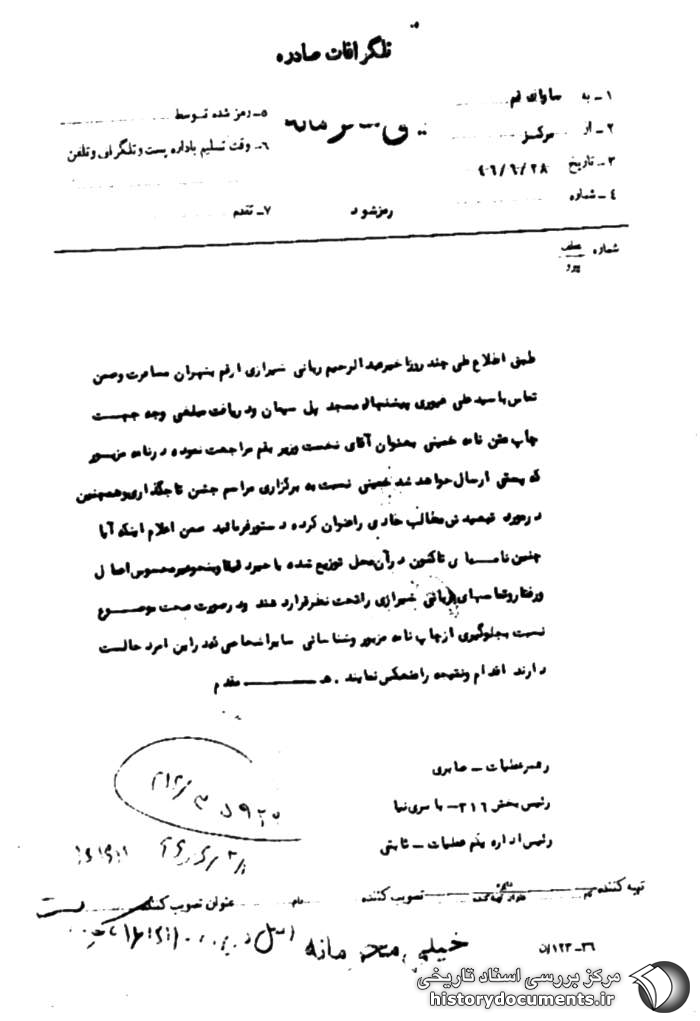 تلگرافات صادره
۱ـ به ساواک قم
۲ـ از مرکز
۳ـ تاریخ ۴۶/۶/۲۸
۴ـ شماره
۵ـ رمز شده توسط
۶ـ وقت تسلیم باداره پست و تلگراف و تلفن
رمز شود
۷ـ تقدم
شماره عطف
پیرو
طبق اطلاع طی چند روز اخیر عبدالرحیم ربانی شیرازی از قم بتهران مسافرت و ضمن
تماس با سید علی غیوری پیشنماز مسجد پل سیمان و دریافت مبلغی وجه جهت
چاپ متن نامه خمینی بعنوان آقای نخست وزیر بقم مراجعت نموده در نامه مزبور
که پستی ارسال خواهد شد خمینی نسبت به برگزاری مراسم جشن تاجگذاری و همچنین
در مورد تبعیدش مطالب حادی را عنوان کرده دستور فرمائید ضمن اعلام اینکه آیا
چنین نامه‌ای تاکنون در آن محل توزیع شده یا خیر دقیقا و بنحو غیر محسوس اعمال
و رفتار و تماسهای ربانی شیرازی را تحت نظر قرار دهند و در صورت صحت موضوع
نسبت بجلوگیری از چاپ نامه مزبور و شناسائی سایر اشخاصی که در این امر دخالت
دارند اقدام و نتیجه را منعکس نمایند . هـ ـــــ مقدم
رهبر عملیات ـ صابری
رئیس بخش ۳۱۶ ـ یاسری نیا
رئیس اداره یکم عملیات ـ ثابتی
تهیه کننده نام
تصویب کننده نام
عنوان تصویب کننده
خیلی محرمانه
۳۶ـ۱۲۳/ن
مرکز بررسی اسناد تاریخی
historydocuments.ir